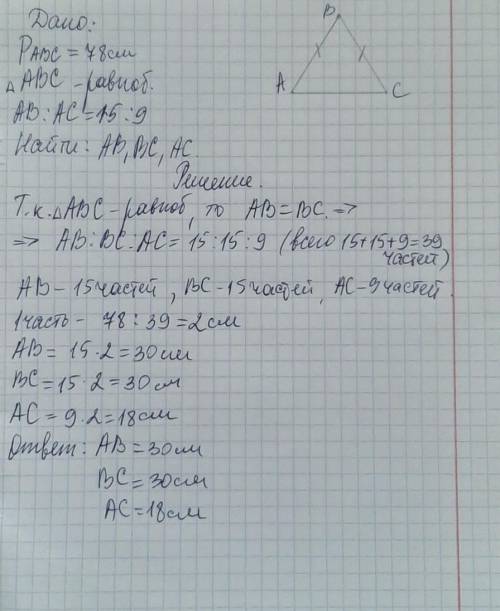 Дано:
PABC = 78см
△ ABC - равноб.
AB : AC = 15 : 9
Найти: AB, BC, AC.
B
A
C
Решение.
Т.к. △ABC - равноб, то AB = BC. =>
=> AB : BC : AC = 15 : 15 : 9 (всего 15+15+9=39
частей)
AB - 15 частей, BC - 15 частей, AC - 9 частей.
1 часть - 78 : 39 = 2 см
AB = 15 · 2 = 30см
BC = 15 · 2 = 30 см
AC = 9 · 2 = 18 см
Ответ: AB = 30см
BC = 30см
AC = 18см